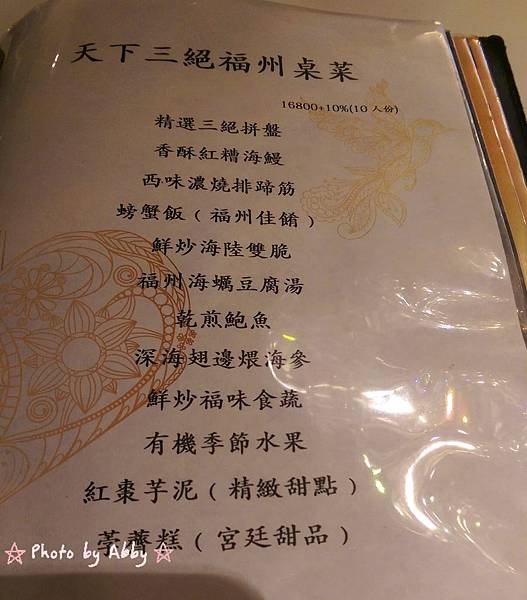 天下三絕福州桌菜
16800+10%(10 人份)
精選三絕拼盤
香酥紅糟海鰻
西味濃燒排蹄筋
螃蟹飯（福州佳餚）
鮮炒海陸雙脆
福州海蠣豆腐湯
乾煎鮑魚
深海翅邊煨海參
鮮炒福味食蔬
有機季節水果
紅棗芋泥（精緻甜點）
荸薺糕（宮廷甜品）
Photo by Abby